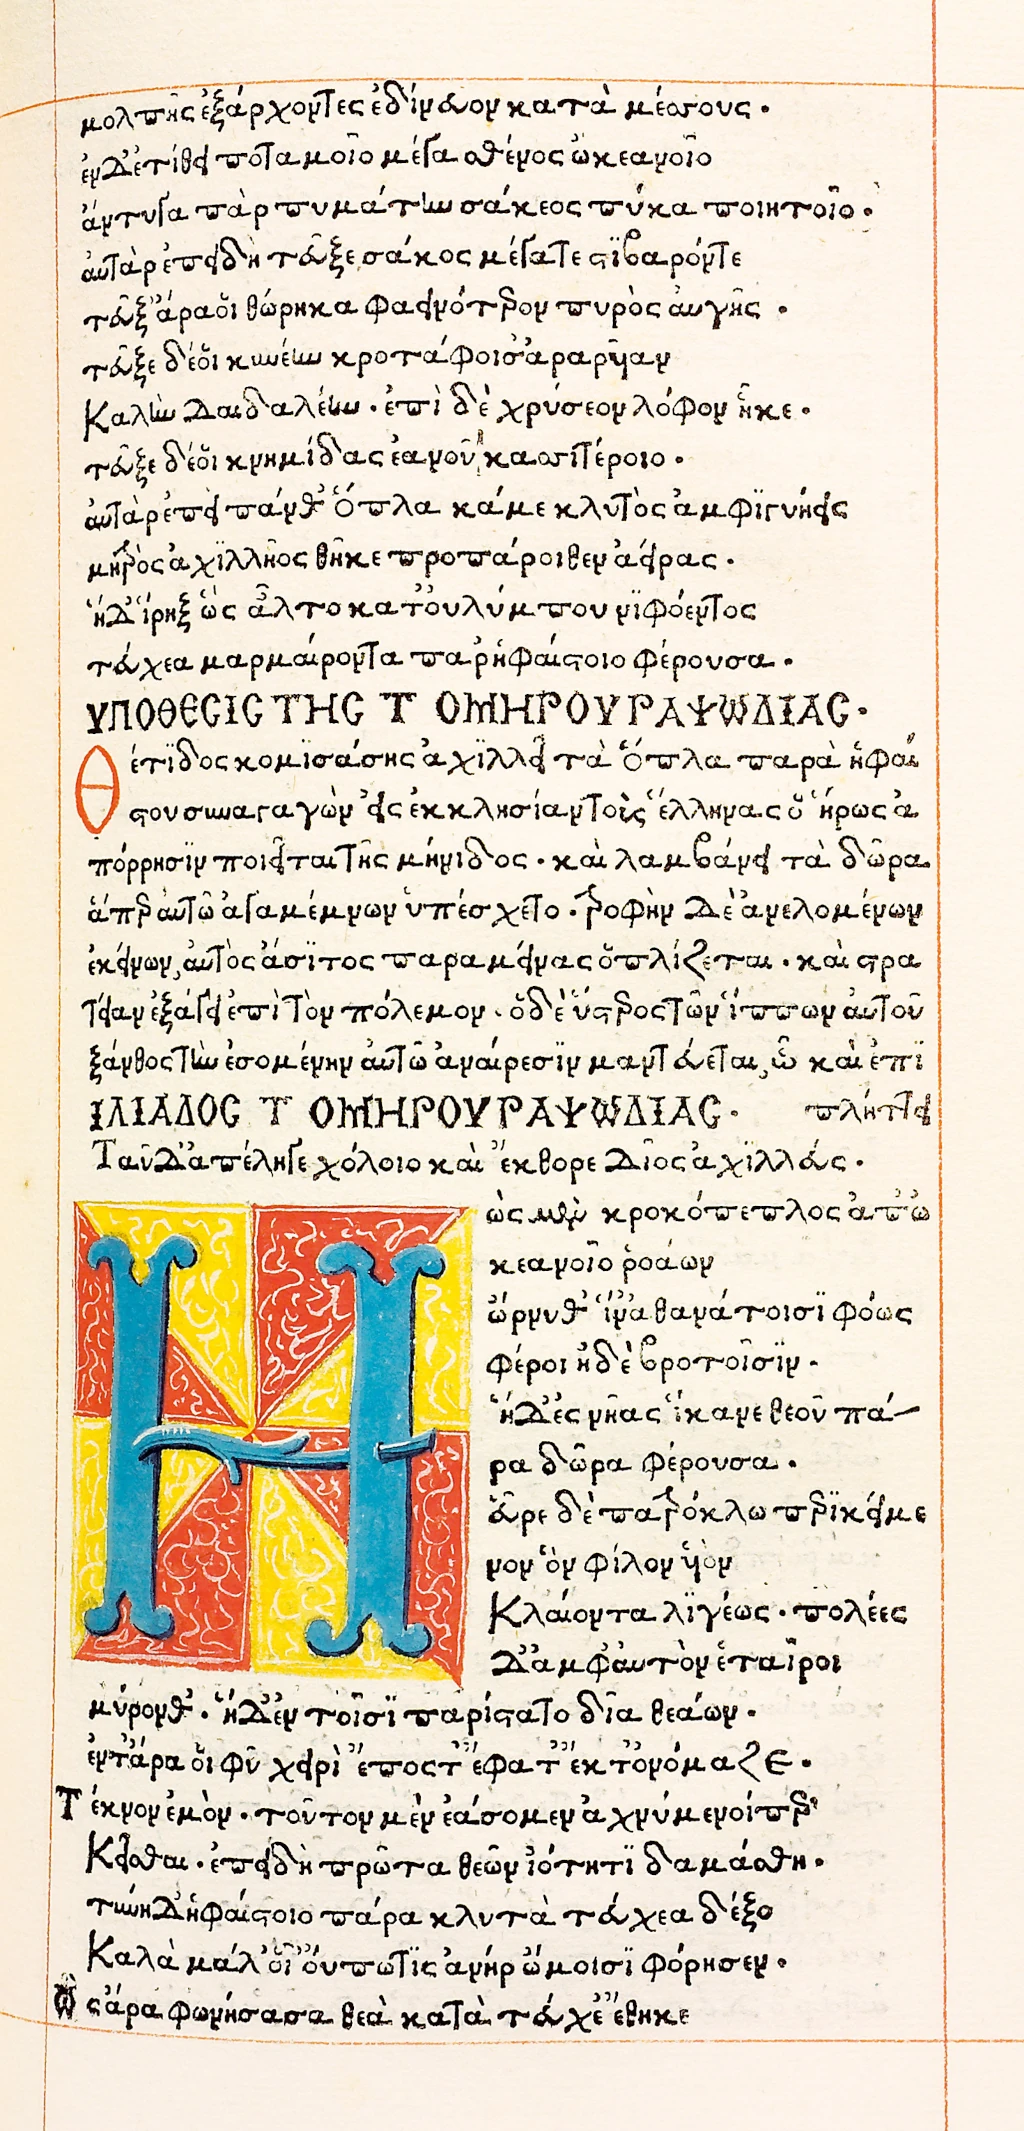 μολπῆς ἐξάρχοντες ἐδίνευον κατὰ μέσσους·
ἐν δ' ἐτίθει ποταμοῖο μέγα σθένος ὠκεανοῖο
ἄντυγα πὰρ πυμάτην σάκεος πύκα ποιητοῖο·
αὐτὰρ ἐπειδὴ τεῦξε σάκος μέγα τε στϊβαρόν τε
τεῦξ' ἄρα οἱ θώρηκα φαεινότερον πυρὸς αὐγῆς·
τεῦξε δέ οἱ κυνέην κροτάφοισ' ἀραρυῖαν
Καλὴν δαιδαλέην· ἐπὶ δὲ χρύσεον λόφον ἧκε·
τεῦξε δέ οἱ κνημίδας ἑανοῦ κασσιτέροιο·
αὐτὰρ ἐπεὶ πάνθ' ὅπλα κάμε κλυτὸς ἀμφϊγυήεις
μητρὸς ἀχϊλλῆος θῆκε προπάροιθεν ἀείρας·
ἡ δ' ἴρηξ ὣς ἆλτο κατ' οὐλύμπου νϊφόεντος
τεύχεα μαρμαίροντα παρ' ἡφαίστοιο φέρουσα·
ΥΠΟΘΕCΙC ΤΗC Τ ΟΜΗΡΟΥ ΡΑΨΩΔΙΑC·
Θέτϊδος κομϊσάσης ἀχϊλλεῖ τὰ ὅπλα παρὰ ἡφαί
στου συναγαγὼν εἰς ἐκκλησίαν τοὺς ἕλληνας ὁ ἥρως ἀ
πόρρησϊν ποιεῖται τῆς μήνιδος· καὶ λαμβάνει τὰ δῶρα
ἅπερ αὐτῶ ἀγαμέμνων ὑπέσχετο· τροφὴν δὲ ἀνελομένων
ἐκείνων, αὐτὸς ἄσϊτος παραμείνας ὁπλίζεται· καὶ στρα
τείαν ἐξάγει ἐπὶ τὸν πόλεμον· ὁ δὲ ὕστερος τῶν ἵππων αὐτοῦ
ξάνθος τὴν ἐσομένην αὐτῶ ἀναίρεσϊν μαντεύεται, ὧ καὶ ἐπϊ
ΙΛΙΑΔΟC Τ ΟΜΗΡΟΥ ΡΑΨΩΔΙΑC· πλήττει
Ταῦ δ' ἀπέληγε χόλοιο καὶ ἔκθορε δῖος ἀχϊλλεύς·
Ἠὼς μὲν κροκόπεπλος ἀπ' ὠ
κεανοῖο ῥοάων
ὤρνυθ' ἵν' ἀθανάτοισϊ φόως
φέροι ἠδὲ βροτοῖσϊν·
ἡ δ' ἐς νῆας ἵκανε θεοῦ πά-
ρα δῶρα φέρουσα·
εὗρε δὲ πατρόκλω περϊκείμε
νον ὃν φίλον υἱὸν
Κλαίοντα λϊγέως· πολέες
δ' ἀμφ' αὐτὸν ἑταῖροι
μύρονθ'· ἡ δ' ἐν τοῖσϊ παρίστατο δῖα θεάων·
ἐν τ' ἄρα οἱ φῦ χειρὶ ἔπος τ' ἔφατ' ἔκ τ' ὀνόμαζε·
Τέκνον ἐμὸν· τοῦτον μὲν ἐάσομεν ἀχνύμενοί περ
Κεῖσθαι· ἐπειδὴ πρῶτα θεῶν ἰότητϊ δαμάσθη·
τύνη δ' ἡφαίστοιο πάρα κλυτὰ τεύχεα δέξο
Καλὰ μάλ' οἷ' οὔπω τϊς ἀνὴρ ὤμοισϊ φόρησεν·
Ὣς ἄρα φωνήσασα θεὰ κατὰ τεύχε' ἔθηκε